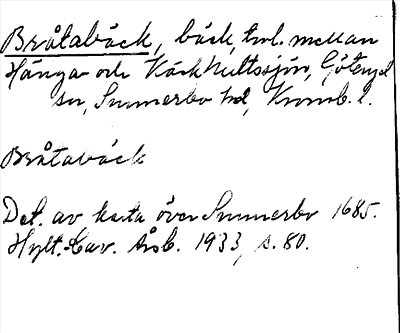 Bråtabäck, bäck, trol. mellan
Hånga och Väck Hultssjön, Göteryd
sn, Sunnerbo hd, Kronob. l.
Bråtabäck
Det. av karta över Sunnerbo 1685.
Hylt.-Cav. Årsb. 1933, s. 80.